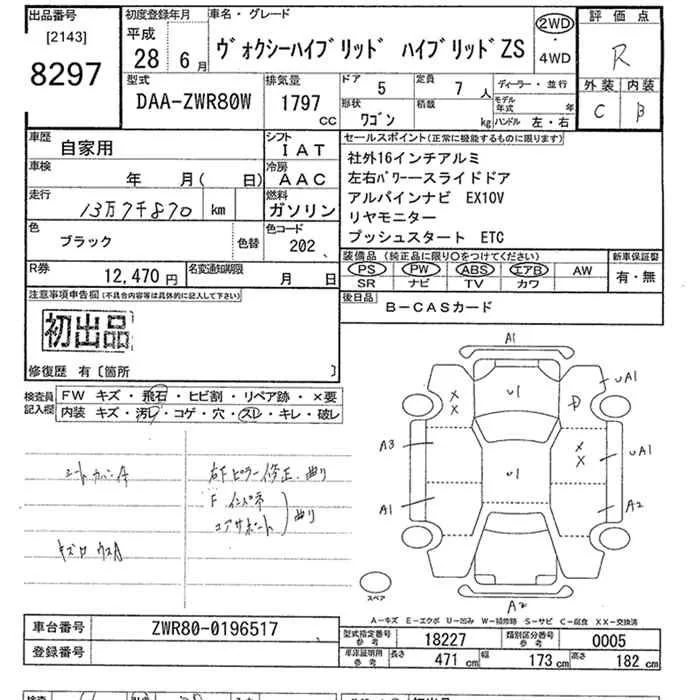 出品番号
[2143]
8297
初度登録年月
平成
28 6月
車名・グレード
ヴォクシーハイブリッド ハイブリッドZS
2WD
・
4WD
評価点
R
外装 内装
C B
型式
DAA-ZWR80W
排気量
1797
cc
ドア
5
定員
7 人
形状
ワゴン
積載
kg
ディーラー・並行
モデル年式 年
ハンドル 左・右
車歴
自家用
シフト
IAT
車検
年 月( 日)
冷房
AAC
走行
13万7千870 km
燃料
ガソリン
色
ブラック
色替
色コード
202
R券
12,470 円
名変通知期限
月 日
セールスポイント(正常に機能するものに限ります)
社外16インチアルミ
左右パワースライドドア
アルパインナビ EX10V
リヤモニター
プッシュスタート ETC
装備品(純正品に限り○をつけてください)
PS PW ABS エアB AW
SR ナビ TV カワ
新車保証書
有・無
後日品
B-CASカード
注意事項申告欄(不具合内容等は具体的に記入して下さい)
初出品
修復歴 有〔箇所 〕
検査員記入欄
FW キズ・飛石・ヒビ割・リペア跡・×要
内装 キズ・汚レ・コゲ・穴・スレ・キレ・破レ
シートカバーA
右Fピラー修正、曲り
F インパネ
コアサポート
曲り
A1
U1
UA1
X
X
P
A3
X
X
U1
UA1
A1
A2
A2
スペア
A-キズ E-エクボ U-凹み W-補修跡 S-サビ C-腐食 XX-交換済
車台番号
ZWR80-0196517
登録番号
型式指定番号
参考
18227
類別区分番号
参考
0005
車庫証明用
参考
長さ
471 cm
幅
173 cm
高さ
182 cm